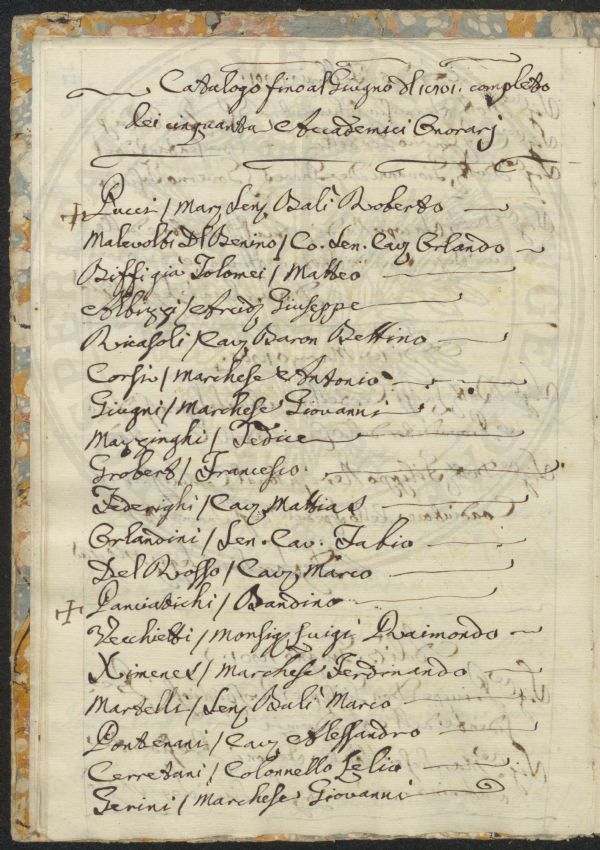 Catalogo fino al Giugno dl 1701. completo
dei cinquanta Accademici Onorarj
Pucci / Marz Senz Balì Roberto
Malevolti Dl Benino / Co. Sen. Cavz Orlando
Biffi già Tolomei / Matteo
Albizzi / Arcidz Giuseppe
Ricasoli / Cavz Baron Bettino
Corsi / Marchese Antonio
Giugni / Marchese Giovanni
Mazzinghi / Tedice
Grobert / Francesco
Federighi / Cavz Mattias
Orlandini / Sen. Cav. Fabio
Del Rosso / Cavz Marco
Panciatichi / Bandino
Vecchietti / Monsigz Luigi Raimondo
Ximenes / Marchese Ferdinando
Martelli / Senz Balì Marco
Pontenani / Cavz Alessandro
Cerretani / Colonnello Lelio
Gerini / Marchese Giovanni